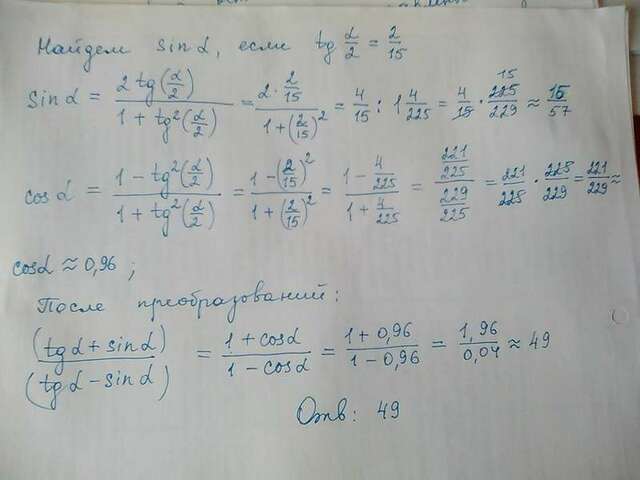 Найдем sin α, если tg α/2 = 2/15
sin α = 2 tg(α/2) / 1 + tg²(α/2) = 2 · 2/15 / 1 + (2/15)² = 4/15 : 1 4/225 = 4/15 · 225/229 15 ≈ 15/57
cos α = 1 − tg²(α/2) / 1 + tg²(α/2) = 1 − (2/15)² / 1 + (2/15)² = 1 − 4/225 / 1 + 4/225 = 221/225 / 229/225 = 221/225 · 225/229 = 221/229 ≈
cos α ≈ 0,96 ;
После преобразований:
(tg α + sin α) / (tg α − sin α) = 1 + cos α / 1 − cos α = 1 + 0,96 / 1 − 0,96 = 1,96 / 0,04 ≈ 49
Отв: 49